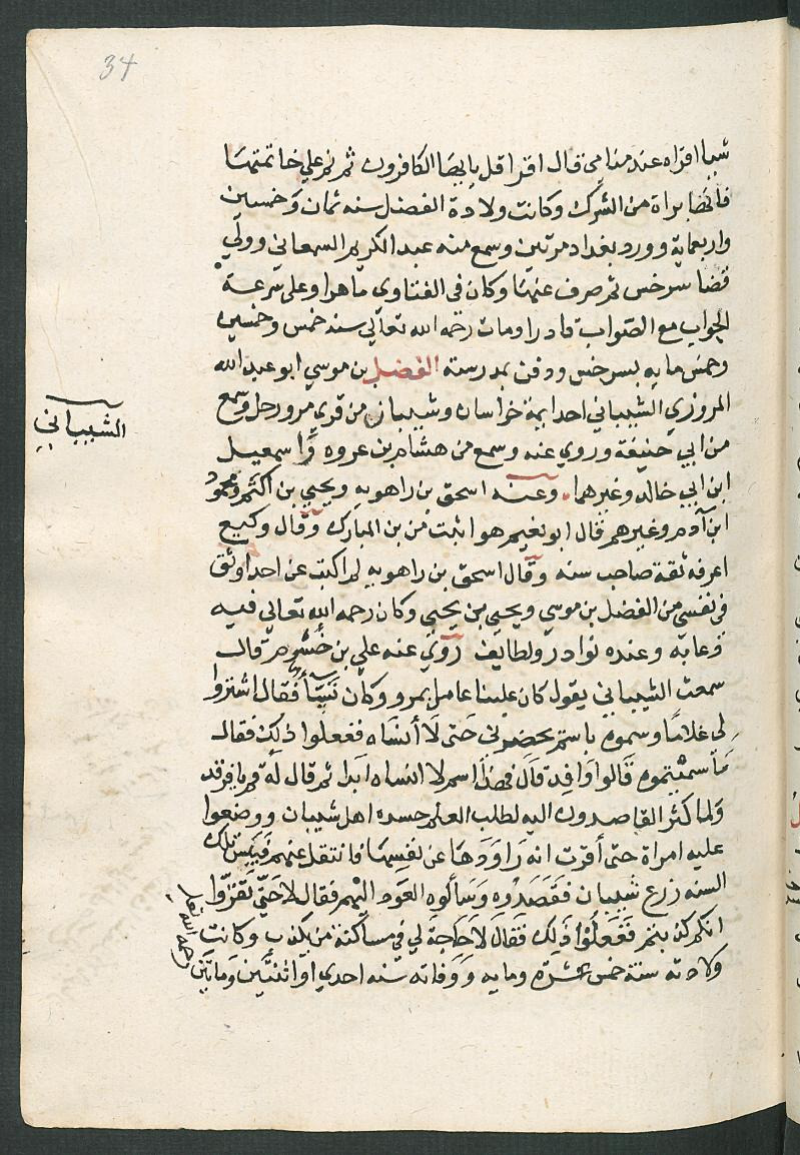 34
شيا اقراه عند منامي قال اقرا قل يا ايها الكافرون ثم نم على خاتمتها
فانها براة من الشرك وكانت ولادة الفضل سنه ثمان وخمسين
واربعماية وورد بغداد مرتين وسمع منه عبد الكريم السمعاني وولي
قضا سرخس ثم صرف عنها وكان في الفتاوي ماهرا وعلى سرعة
الجواب مع الصواب قادرا ومات رحمه الله تعالي سنه خمس وخمسين
وخمس مايه بسرخس ودفن بمدرسته الفضل بن موسي ابو عبد الله
المروزي الشيباني احد ايمة خراسان وشيبان من قري مرو رحل وسمع
الشيباني
من ابي حنيفة وروي عنه وسمع من هشام بن عروه واسمعيل
ابن ابي خالد وغيرهما وعنه اسحق بن راهويه ويحيي بن اكثم ومحمود
ابن آدم وغيرهم قال ابو نعيم هو اثبت من بن المبارك وقال وكيع
اعرفه ثقة صاحب سنه وقال اسحق بن راهويه لم اكتب عن احد اوثق
في نفسي من الفضل بن موسي ويحيي بن يحيي وكان رحمه الله تعالي فيه
دعابه وعنده نوادر ولطايف روي عنه علي بن خشرم قال
سمعت الشيباني يقول كان علينا عامل بمرو وكان نسّأ فقال اشتروا
لي غلاما وسموه باسم يحضرني حتى لا أنساه ففعلوا ذلك فقال
ما سميتموه قالوا وافد قال فهذا اسم لا انساه ابدا ثم قال له قم يا فرقد
ولما كثر القاصدون اليه لطلب العلم حسده اهل شيبان ووضعوا
عليه امراة حتى أقرت انه راودها عن نفسها فانتقل عنهم فيبس تلك
السنه زرع شيبان فقصدوه وسألوه العود اليهم فقال لا حتى تقروا
انكم كذبتم ففعلوا ذلك فقال لا حاجة لي في مساكنة من يكذب وكانت
ولادته سنة خمس عشرة ومايه ووفاته سنه احدي او اثنتين وماتين
رحمه الله تعالى